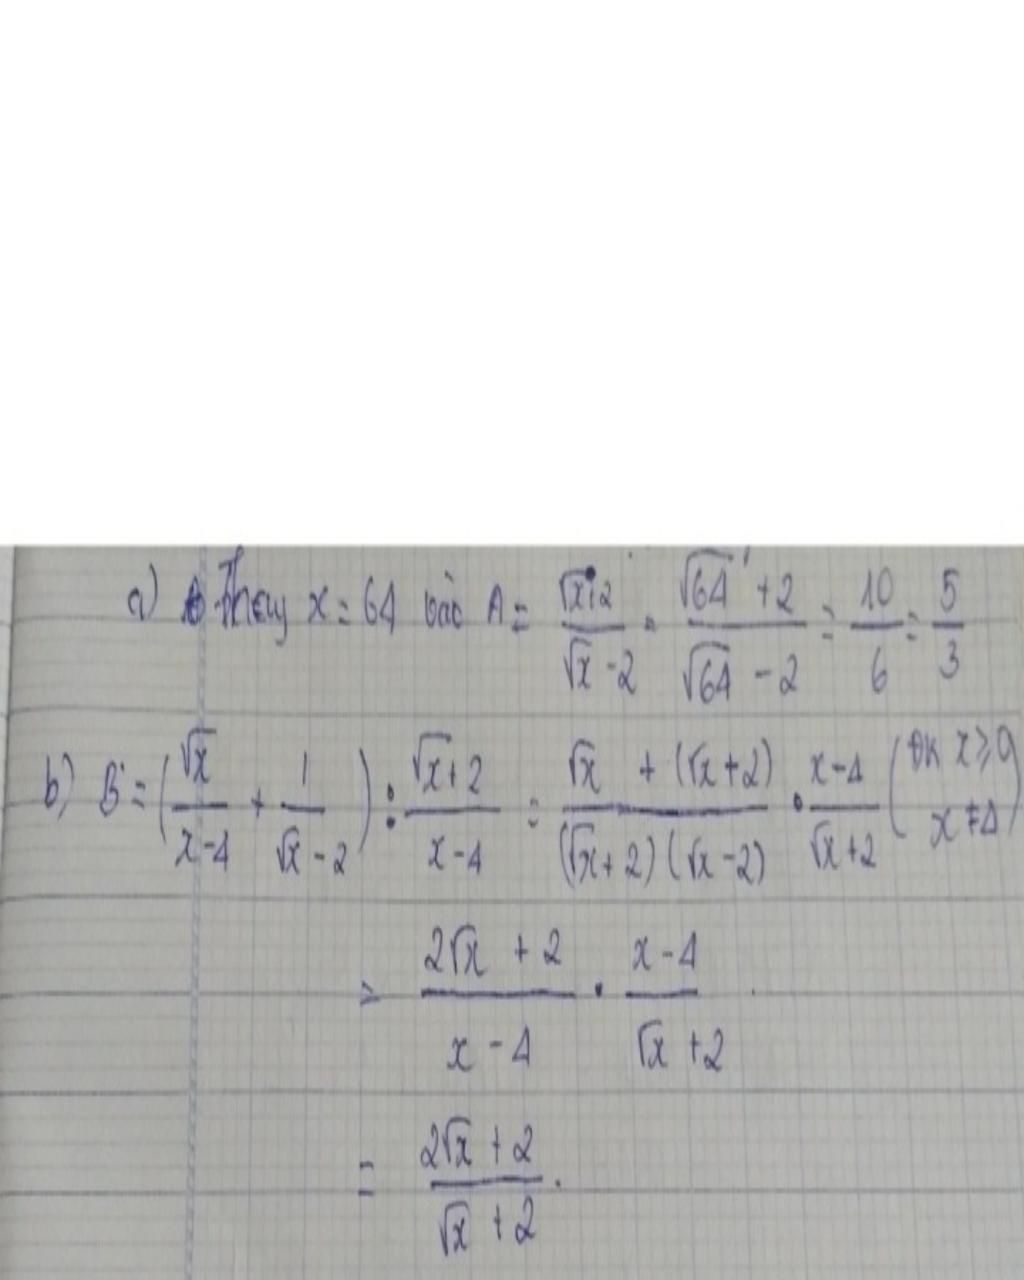 a) Thay x = 64 vào A = \frac{\sqrt{x}+2}{\sqrt{x}-2} = \frac{\sqrt{64}+2}{\sqrt{64}-2} = \frac{10}{6} = \frac{5}{3}
b) B = \left(\frac{\sqrt{x}}{x-4} + \frac{1}{\sqrt{x}-2}\right) : \frac{\sqrt{x}+2}{x-4} = \frac{\sqrt{x} + (\sqrt{x}+2)}{(\sqrt{x}+2)(\sqrt{x}-2)} \cdot \frac{x-4}{\sqrt{x}+2} (ĐK x ≥ 0 x ≠ 4)
= \frac{2\sqrt{x}+2}{x-4} \cdot \frac{x-4}{\sqrt{x}+2}
= \frac{2\sqrt{x}+2}{\sqrt{x}+2}.